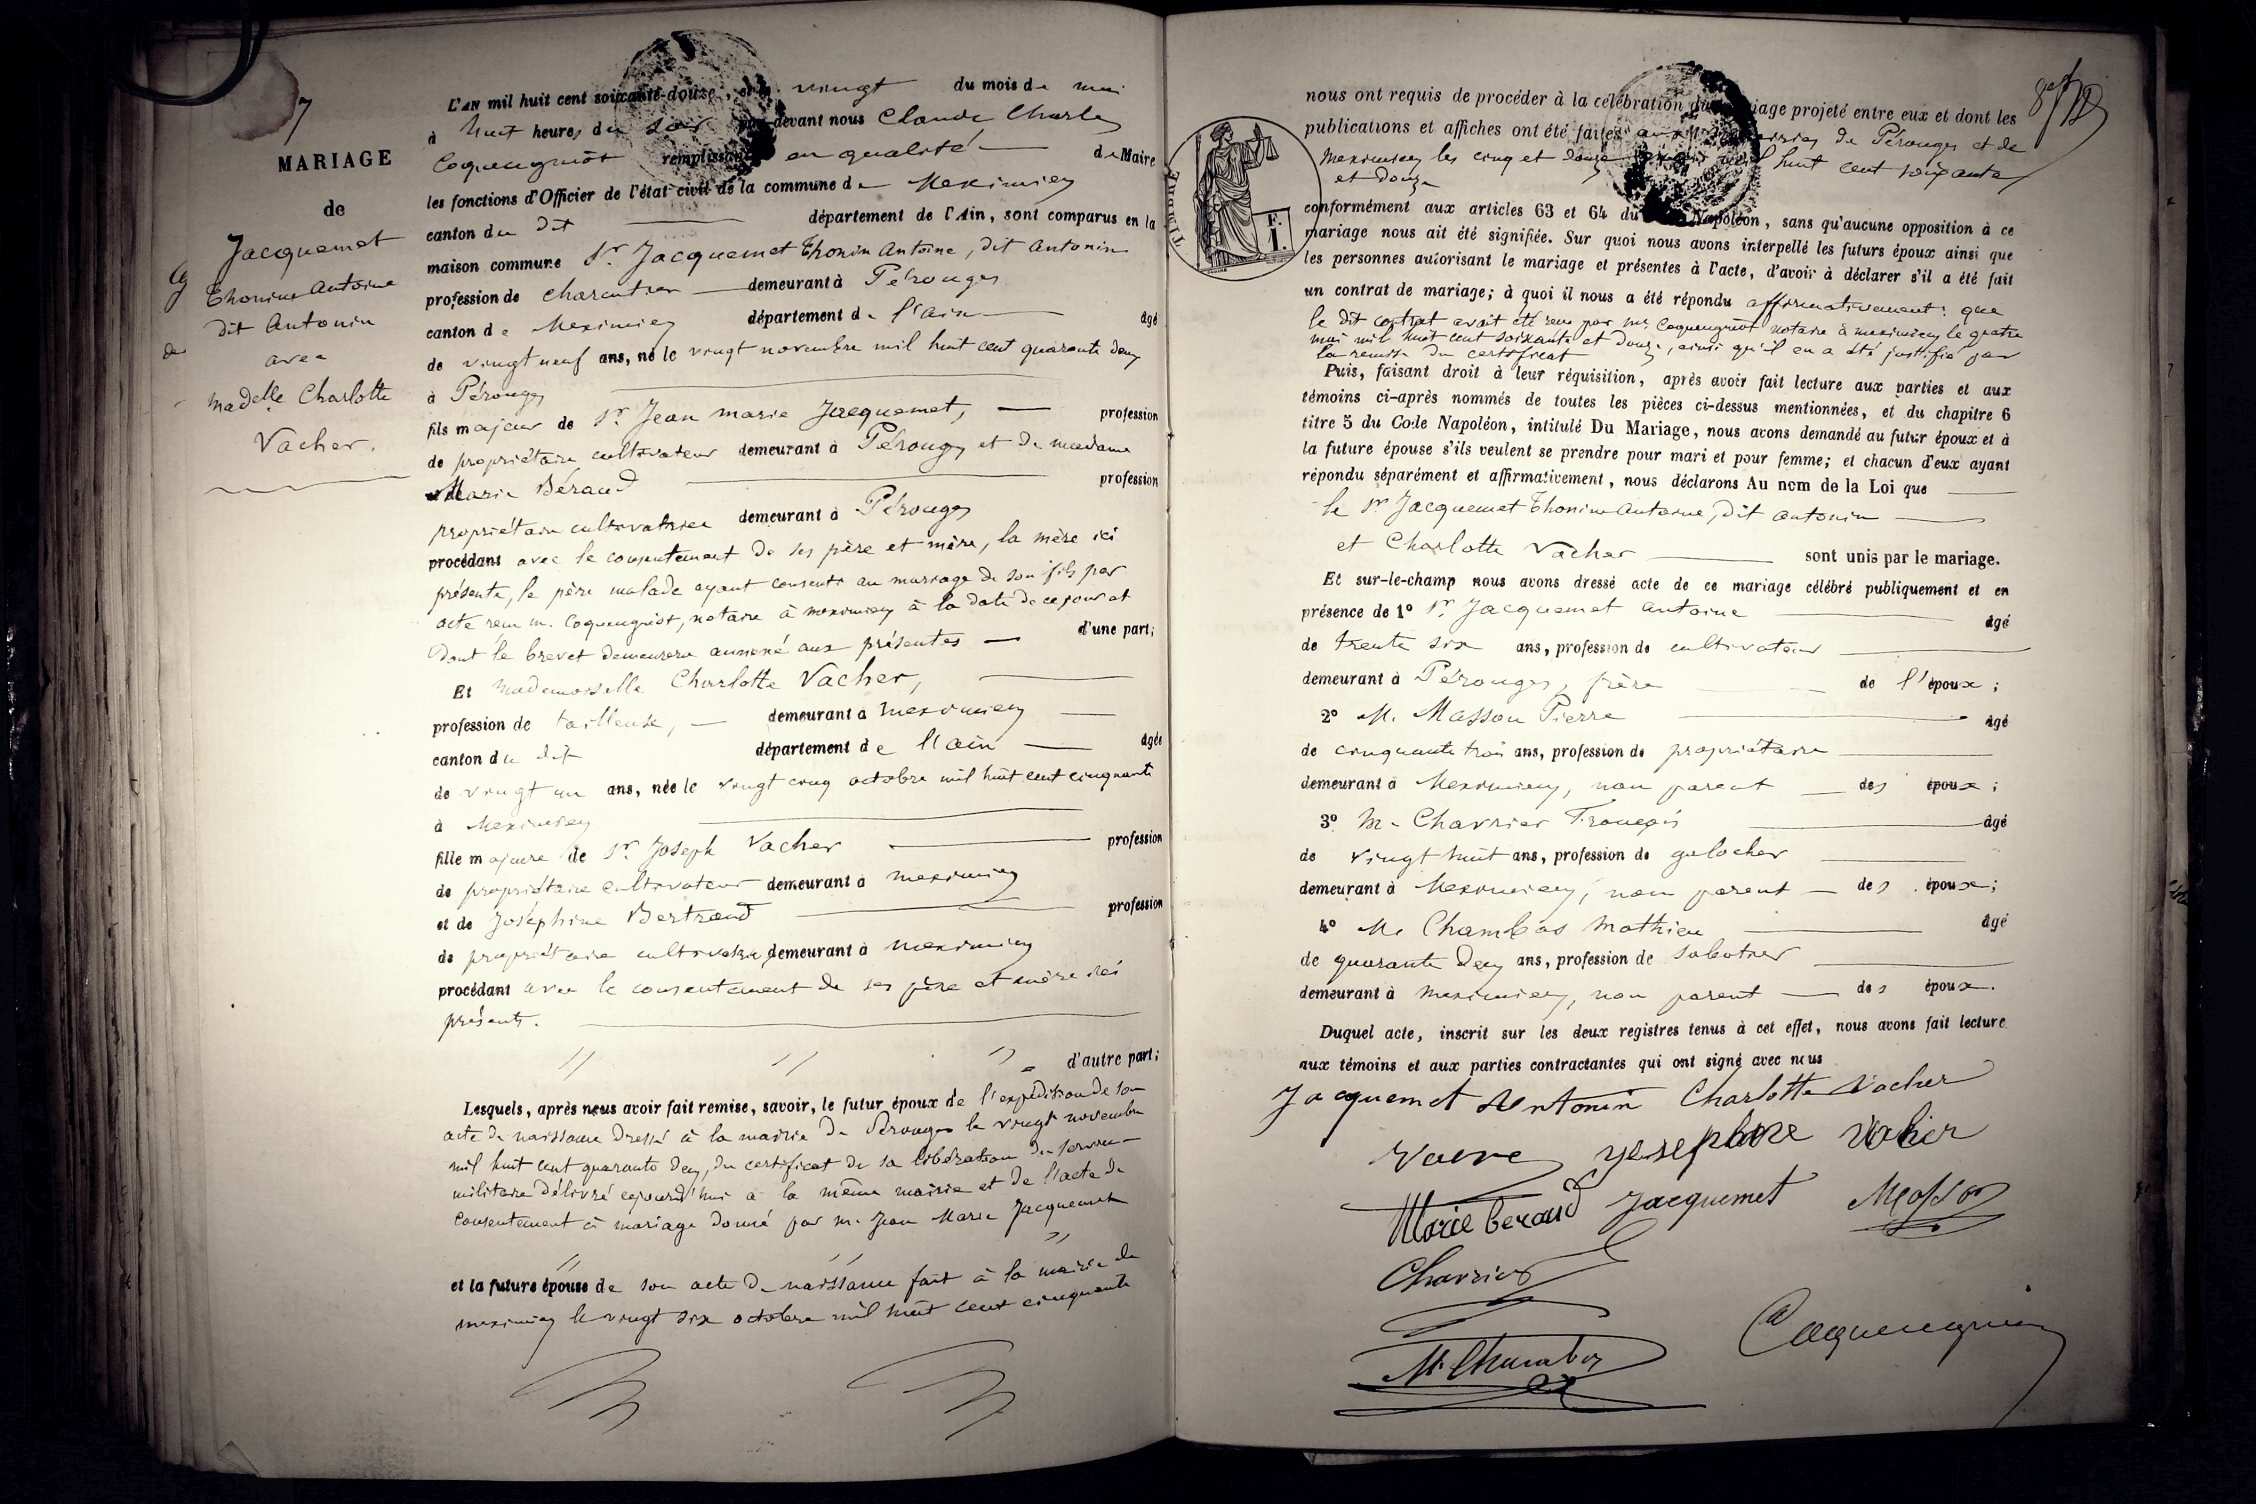 7
MARIAGE
de
Jacquemet
Thonin Antoine
dit Antonin
avec
Madelle Charlotte
Vacher.
L'AN mil huit cent soixante-douze, et le vingt du mois de mai
à huit heures du soir par devant nous Claude Charles
Coquengniot remplissant en qualité de Maire
les fonctions d'Officier de l'état civil de la commune de Meximieux
canton du dit département de l'Ain, sont comparus en la
maison commune Sr. Jacquemet Thonin Antoine, dit Antonin
profession de charcutier demeurant à Pérouges
canton de Meximieux département de l'ain âgé
de vingt neuf ans, né le vingt novembre mil huit cent quarante deux
à Pérouges
fils majeur de Sr. Jean marie Jacquemet, profession
de propriétaire cultivateur demeurant à Pérouges et de madame
Marie Béraud profession
propriétaire cultivatrice demeurant à Pérouges
procédant avec le consentement de ses père et mère, la mère ici
présente, le père malade ayant consenti au mariage de son fils par
acte reçu m. Coquengniot, notaire à meximieux à la date de ce jour et
dont le brevet demeurera annexé aux présentes d'une part;
Et Mademoiselle Charlotte Vacher,
profession de tailleuse, demeurant à Meximieux
canton du dit département de l'ain âgée
de vingt un ans, née le vingt cinq octobre mil huit cent cinquante
à Meximieux
fille majeure de Sr. Joseph Vacher profession
de propriétaire cultivateur demeurant à meximieux
et de Joséphine Bertrand profession
de propriétaire cultivatrice demeurant à meximieux
procédant avec le consentement de ses père et mère ici
présents.
d'autre part;
Lesquels, après nous avoir fait remise, savoir, le futur époux de l'expédition de son
acte de naissance dressé à la mairie de Pérouges le vingt novembre
mil huit cent quarante deux, du certificat de sa libération du service
militaire délivré aujourd'hui à la même mairie et de l'acte de
consentement à mariage donné par m. Jean Marie Jacquemet
et la future épouse de son acte de naissance fait à la mairie de
meximieux le vingt six octobre mil huit cent cinquante
nous ont requis de procéder à la célébration du mariage projeté entre eux et dont les
publications et affiches ont été faites aux mairies de Pérouges et de
Meximieux les cinq et douze mil huit cent soixante
et douze
TIMBRE
F.
1.
conformément aux articles 63 et 64 du Napoléon, sans qu'aucune opposition à ce
mariage nous ait été signifiée. Sur quoi nous avons interpellé les futurs époux ainsi que
les personnes autorisant le mariage et présentes à l'acte, d'avoir à déclarer s'il a été fait
un contrat de mariage; à quoi il nous a été répondu affirmativement: que
le dit contrat avait été reçu par me. Coquengniot notaire à meximieux le quatre
mai mil huit cent soixante et douze, ainsi qu'il en a été justifié par
la remise du certificat
Puis, faisant droit à leur réquisition, après avoir fait lecture aux parties et aux
témoins ci-après nommés de toutes les pièces ci-dessus mentionnées, et du chapitre 6
titre 5 du Code Napoléon, intitulé Du Mariage, nous avons demandé au futur époux et à
la future épouse s'ils veulent se prendre pour mari et pour femme; et chacun d'eux ayant
répondu séparément et affirmativement, nous déclarons Au nom de la Loi que
le Sr Jacquemet Thonin Antoine, dit Antonin
et Charlotte Vacher sont unis par le mariage.
Et sur-le-champ nous avons dressé acte de ce mariage célébré publiquement et en
présence de 1° Sr. Jacquemet Antoine âgé
de trente six ans, profession de cultivateur
demeurant à Pérouges, frère de l'époux;
2° M. Masson Pierre âgé
de cinquante trois ans, profession de propriétaire
demeurant à Meximieux, non parent des époux;
3° M. Charrier François âgé
de vingt huit ans, profession de galocher
demeurant à Meximieux, non parent des époux;
4° M. Chambas Mathieu âgé
de quarante deux ans, profession de sabotier
demeurant à Meximieux, non parent des époux.
Duquel acte, inscrit sur les deux registres tenus à cet effet, nous avons fait lecture
aux témoins et aux parties contractantes qui ont signé avec nous
Jacquemet Antonin Charlotte Vacher
Marie beraud Jacquemet Masson
Charrier